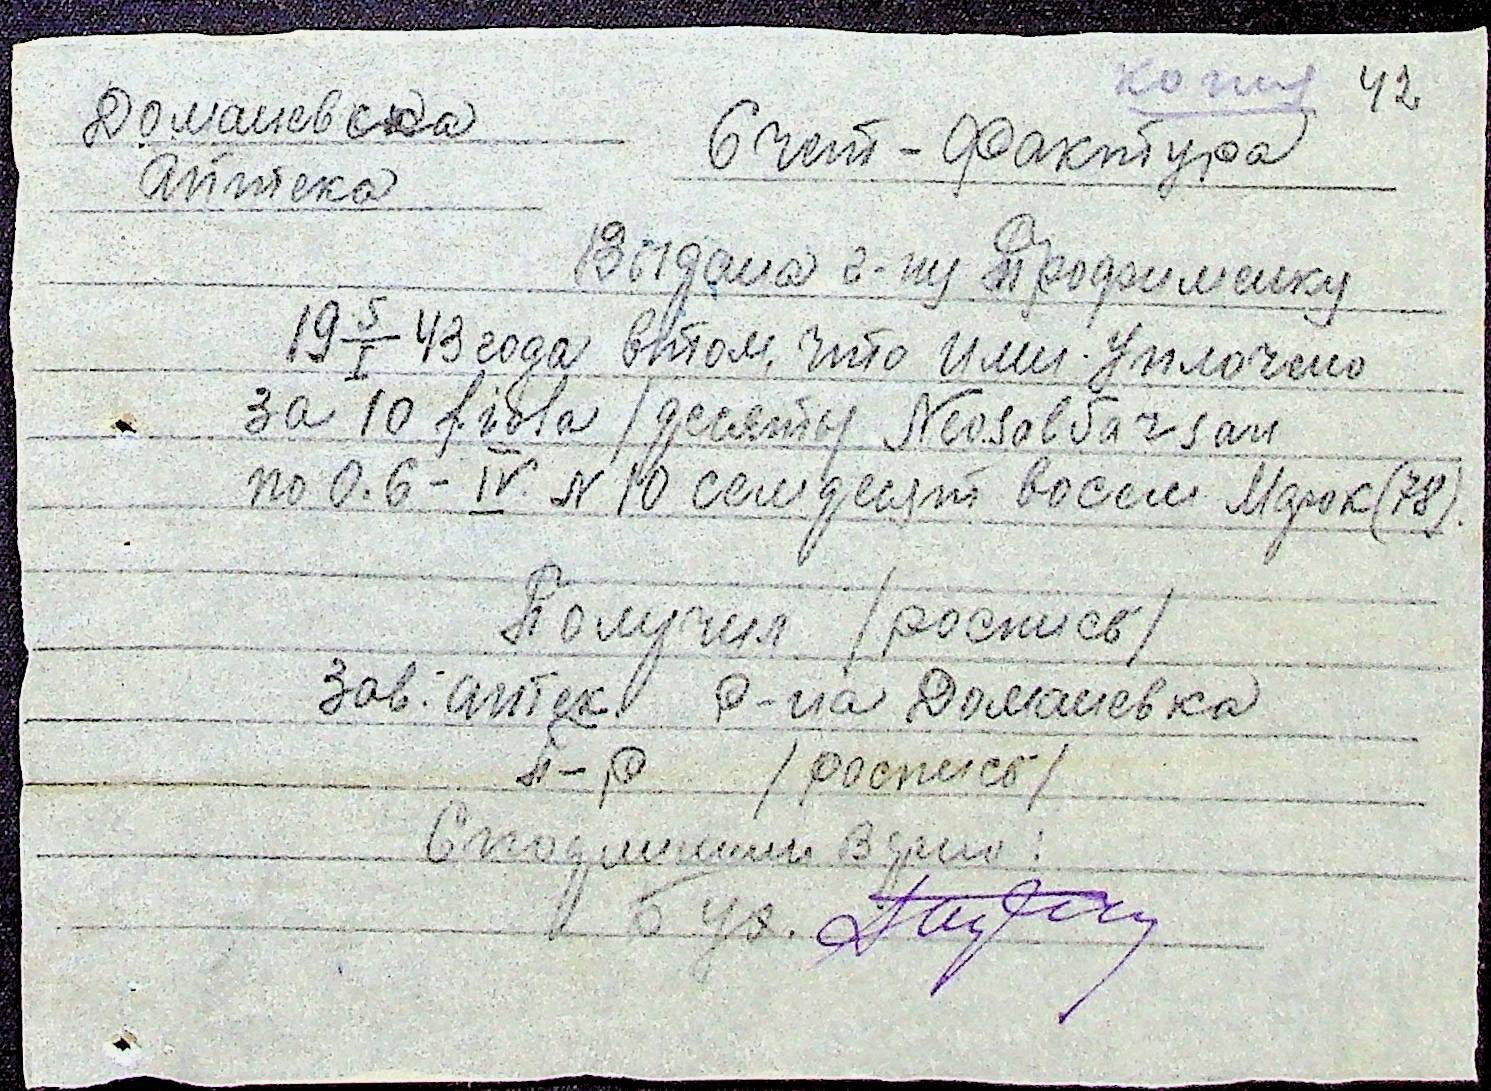 копия 42
Домашевска
Аптека
Счет-Фактура
Выдана г-ну Трофименку
19 5/I 43 года втом, что ими уплочено
за 10 fiola /десяты Neosalbarsan
по 0.6 - IV. N 10 семдесят восем Марок (78).
Получил /роспись/
Зав. аптек. р-на Домашевка
П-р /роспись/
Сподлинным верно:
Бух.